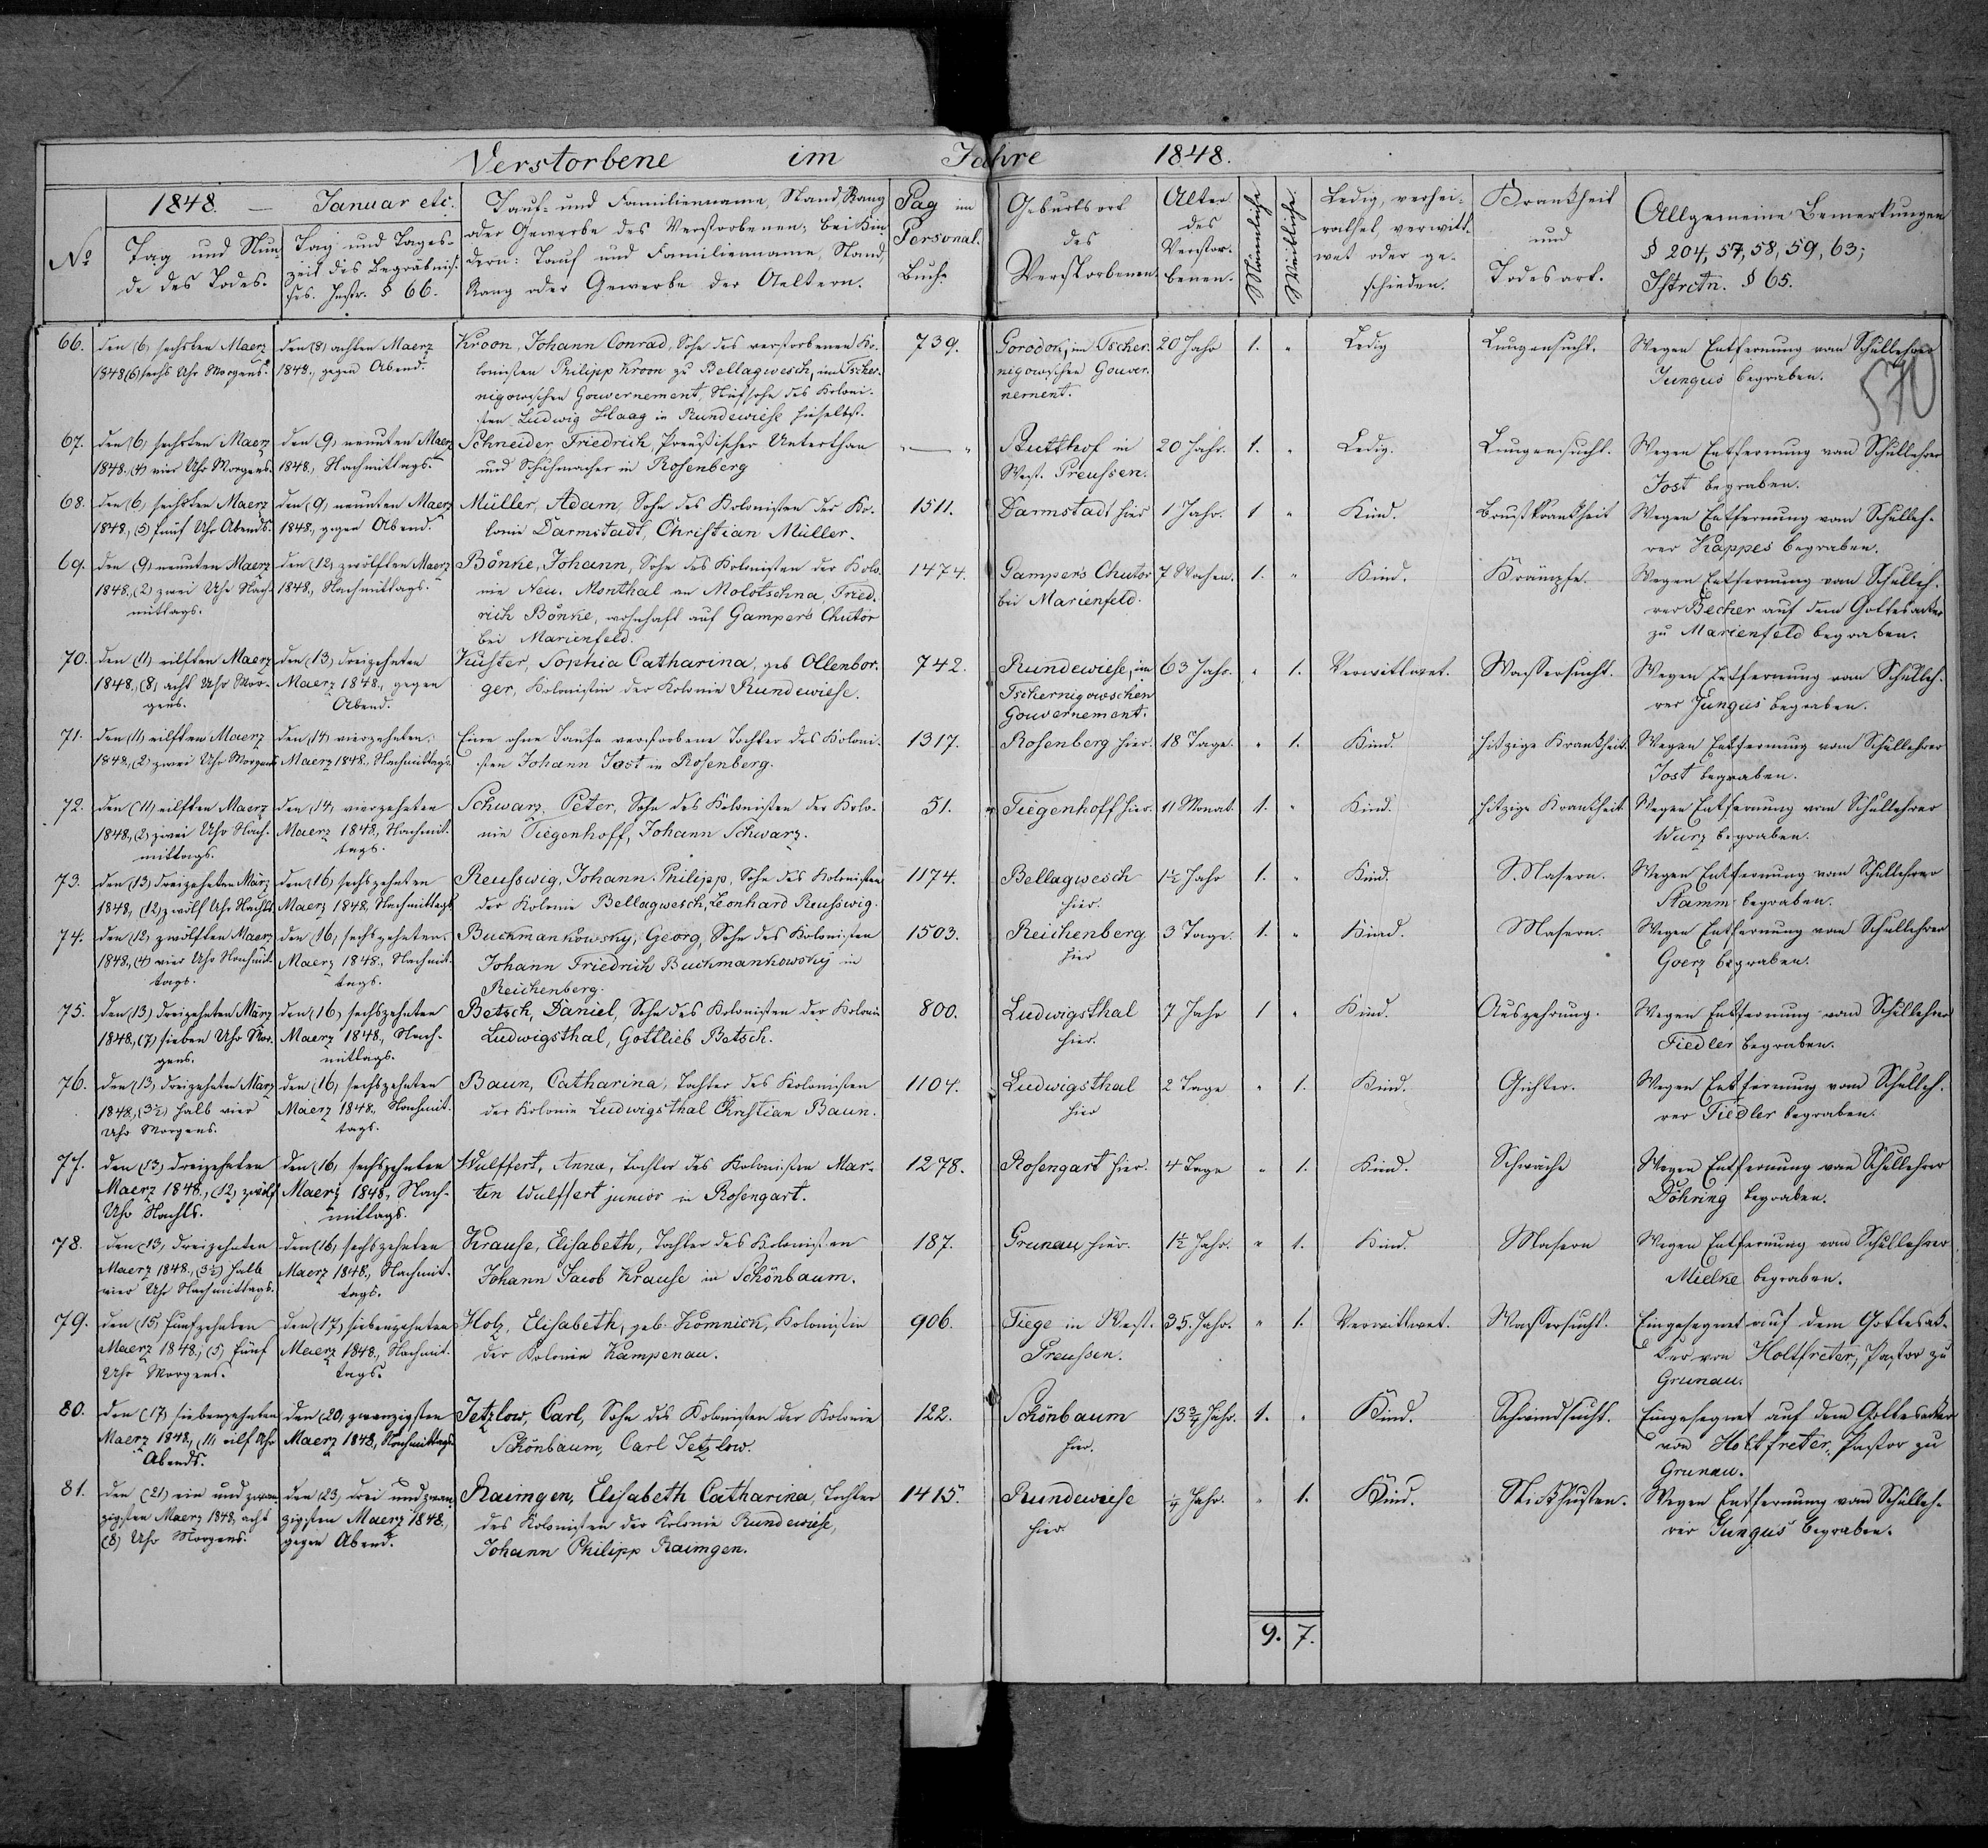 Verstorbene im Jahre 1848.
1848. — Januar etc.
№
Tag und Stun-
de des Todes.
Tag und Tages-
zeit des Begräbnis-
ses. Instr. § 66.
Tauf- und Familienname, Stand, Rang
oder Gewerbe des Verstorbenen; bei Kin-
dern: Tauf und Familienname, Stand,
Rang oder Gewerbe der Aeltern.
Pag im
Personal-
Buch.
Geburtsort
des
Verstorbenen.
Alter
des
Verstor-
benen.
Männliche
Weibliche.
Ledig, verhei-
rathet, verwitt-
wet oder ge-
schieden.
Krankheit
und
Todesart.
Allgemeine Bemerkungen
§ 204, 57, 58, 59, 63;
Istrctn. § 65.
570
66.
den (6) sechsten Maerz
1848 (6) sechs Uhr Morgens.
den (8) achten Maerz
1848., gegen Abend.
Kroon, Johann Conrad, Sohn des verstorbenen Ko-
lonisten Philipp Kroon zu Bellagwesch, im Tscher-
nigowschen Gouvernement, Stiefsohn des Koloni-
sten Ludwig Haag in Rundewiese hieselbst.
739.
Gorodok, im Tscher-
nigowschen Gouver-
nement.
20 Jahr
1. "
Ledig
Lungensucht.
Wegen Entfernung vom Schullehrer
Jungus begraben.
67.
den (6) sechsten Maerz
1848. (4) vier Uhr Morgens.
den (9) neunten Maerz
1848., Nachmittags.
Schneider Friedrich, Preußischer Unterthan
und Schuhmacher in Rosenberg
" — "
Stutthof in
West. Preussen.
20 Jahr.
1. "
Ledig.
Lungensucht.
Wegen Entfernung vom Schullehrer
Jost begraben.
68.
den (6) sechsten Maerz
1848., (5) fünf Uhr Abends.
den (9) neunten Maerz
1848., gegen Abend.
Müller, Adam, Sohn des Kolonisten der Ko-
lonie Darmstadt, Christian Müller.
1511.
Darmstadt hier
1 Jahr.
1 "
Kind.
Brustkrankheit
Wegen Entfernung vom Schulleh-
rer Kappes begraben.
69.
den (9) neunten Maerz
1848., (2) zwei Uhr Nach-
mittags.
den (12) zwölften Maerz
1848., Nachmittags.
Bönke, Johann, Sohn des Kolonisten der Kolo-
nie Neu. Monthal an Molotschna, Fried-
rich Bönke, wohnhaft auf Gampers Chutor
bei Marienfeld.
1474.
Gampers Chutor
bei Marienfeld.
7 Wochen.
1. "
Kind.
Krämpfe.
Wegen Entfernung vom Schulleh-
rer Becher auf dem Gottesacker
zu Marienfeld begraben.
70.
den (11) eilften Maerz
1848., (8) acht Uhr Mor-
gens.
den (13) dreizehnten
Maerz 1848., gegen
Abend.
Küster, Sophia Catharina, geb Ollenbor-
ger, Kolonistin der Kolonie Rundewiese.
742.
Rundewiese, im
Tschernigowschen
Gouvernement.
63 Jahr.
" 1.
Verwittwet.
Wassersucht.
Wegen Entfernung vom Schulleh-
rer Jungus begraben.
71.
den (11) eilften Maerz
1848., (2) zwei Uhr Morgens
den (14) vierzehnten
Maerz 1848., Nachmittags.
Eine ohne Taufe verstorbene Tochter des Koloni-
sten Johann Jost in Rosenberg.
1317.
Rosenberg hier.
18 Tage.
" 1.
Kind.
hitzige Krankheit.
Wegen Entfernung vom Schullehrer
Jost begraben.
72.
den (11) eilften Maerz
1848., (2) zwei Uhr Nach-
mittags.
den (14) vierzehnten
Maerz 1848., Nachmit-
tags.
Schwarz, Peter, Sohn des Kolonisten der Kolo-
nie Tiegenhoff, Johann Schwarz.
51.
Tiegenhoff hier.
11 Monat.
1. "
Kind.
hitzige Krankheit
Wegen Entfernung vom Schullehrer
Wurz begraben.
73.
den (13) dreizehnten März
1848., (12) zwölf Uhr Nachts.
den (16) sechszehnten
Maerz 1848., Nachmittags.
Reusswig, Johann. Philipp, Sohn des Kolonisten
der Kolonie Bellagwesch, Leonhard Reusswig.
1174.
Bellagwesch
hier.
1½ Jahr
1. "
Kind.
Masern.
Wegen Entfernung vom Schullehrer
Stamm begraben.
74.
den (12) zwölften Maerz
1848., (4) vier Uhr Nachmit-
tags.
den (16) sechszehnten
Maerz 1848., Nachmit-
tags.
Buckmankowsky, Georg, Sohn des Kolonisten
Johann Friedrich Buckmankowsky in
Reichenberg.
1503.
Reichenberg
hier
3 Tage.
1. "
Kind.
Masern.
Wegen Entfernung vom Schullehrer
Goerz begraben.
75.
den (13) dreizehnten März
1848., (7) sieben Uhr Mor-
gens.
den (16) sechszehnten
Maerz 1848., Nach-
mittags.
Betsch, Daniel, Sohn des Kolonisten der Kolonie
Ludwigsthal, Gottlieb Betsch.
800.
Ludwigsthal
hier.
7 Jahr
1 "
Kind.
Auszehrung.
Wegen Entfernung vom Schullehrer
Fiedler begraben.
76.
den (13) dreizehnten März
1848., (3½) halb vier
Uhr Morgens.
den (16) sechszehnten
Maerz 1848., Nachmit-
tags.
Baun, Catharina, Tochter des Kolonisten
der Kolonie Ludwigsthal Christian Baun.
1104.
Ludwigsthal
hier
2 Tage
" 1.
Kind.
Gichter.
Wegen Entfernung vom Schulleh-
rer Fiedler begraben.
77.
den (13) dreizehnten
Maerz 1848., (12) zwölf
Uhr Nachts.
den (16) sechszehnten
Maerz 1848., Nach-
mittags.
Wulffert, Anna, Tochter des Kolonisten Mar-
tin Wulffert junior in Rosengart.
1278.
Rosengart hier.
4 Tage
" 1.
Kind.
Schwäche
Wegen Entfernung vom Schullehrer
Döhring begraben.
78.
den (13) dreizehnten
Maerz 1848., (3½) halb
vier Uhr Nachmittags.
den (16) sechszehnten
Maerz 1848., Nachmit-
tags.
Krause, Elisabeth, Tochter des Kolonisten
Johann Jacob Krause in Schönbaum.
187.
Grunau hier.
1½ Jahr.
" 1.
Kind.
Masern
Wegen Entfernung vom Schullehrer
Mielke begraben.
79.
den (15) fünfzehnten
Maerz 1848., (5) fünf
Uhr Morgens.
den (17) siebenzehnten
Maerz 1848., Nachmit-
tags.
Holz, Elisabeth, geb. Komnick, Kolonistin
der Kolonie Kampenau.
906.
Tiege in West.
Preussen.
35. Jahr.
" 1.
Verwittwet.
Wassersucht.
Eingesegnet auf dem Gottesak-
ker von Holtfreter, Pastor zu
Grunau.
80.
den (17) siebenzehnten
Maerz 1848., (11) eilf Uhr
Abends.
den (20) zwanzigsten
Maerz 1848., Nachmittags.
Jetzlow, Carl, Sohn des Kolonisten der Kolonie
Schönbaum, Carl Jetzlow.
122.
Schönbaum
hier.
13¾ Jahr.
1. "
Kind.
Schwindsucht.
Eingesegnet auf dem Gottesacker
von Holtfreter, Pastor zu
Grunau.
81.
den (21) ein und zwan-
zigsten Maerz 1848, acht
(8) Uhr Morgens.
den (23) drei und zwan-
zigsten Maerz 1848.,
gegen Abend.
Raimgen, Elisabeth Catharina, Tochter
des Kolonisten der Kolonie Rundewiese,
Johann Philipp Raimgen.
1415.
Rundewiese
hier.
Jahr.
" 1.
Kind.
Stickhusten.
Wegen Entfernung vom Schulleh-
rer Jungus begraben.
9. 7.